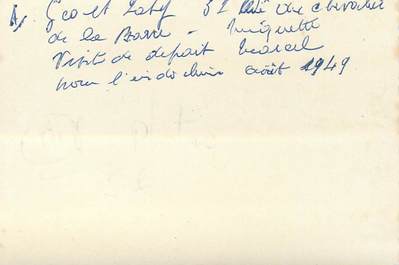 A, Geo et Zaby 32 rue du chevalier
de la Barre - Huguette
Visite de depart Marcel
pour l'indochine août 1949